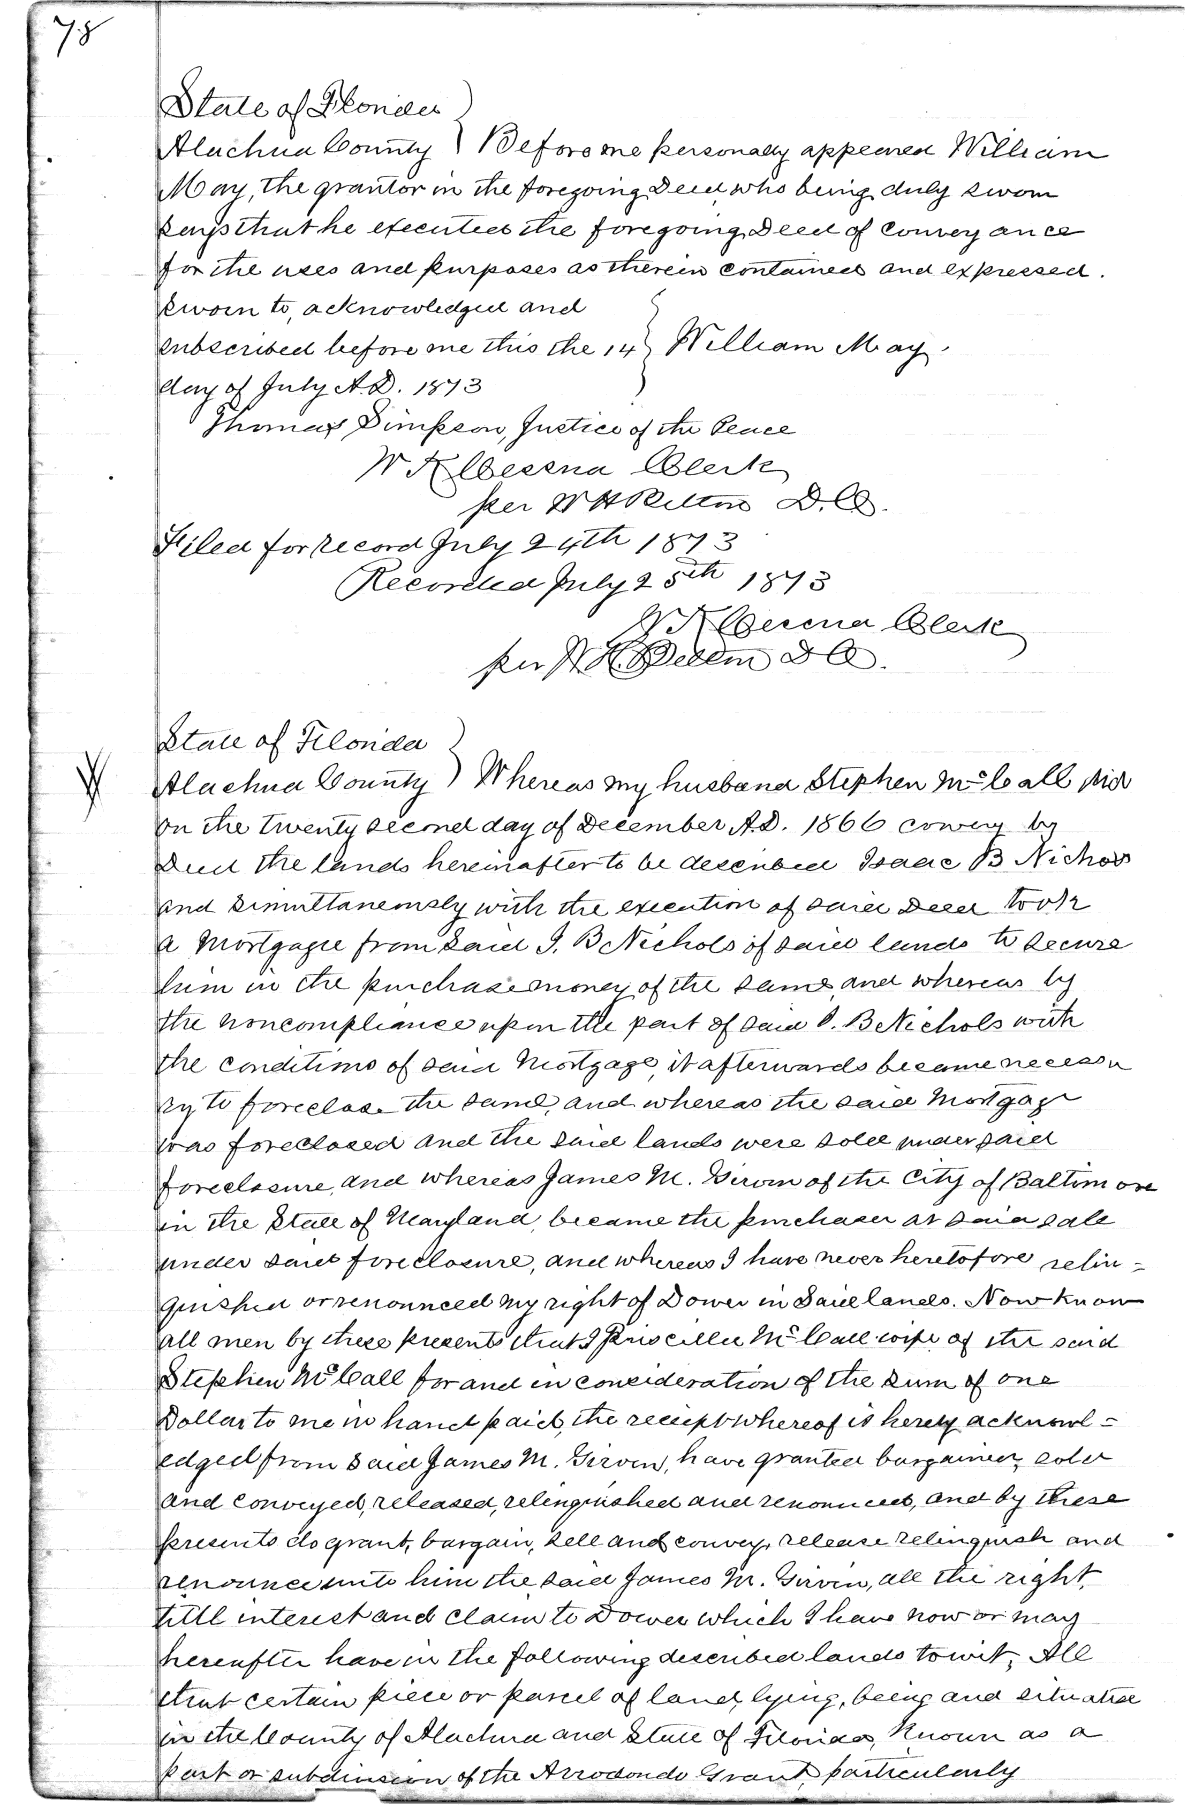 78
State of Florida
Alachua County } Before me personally appeared William
May, the grantor in the foregoing Deed, who being duly sworn
says that he executed the foregoing Deed of Conveyance
for the uses and purposes as therein contained and expressed.
Sworn to, acknowledged and
subscribed before me this the 14 } William May.
day of July A.D. 1873
Thomas Simpson, Justice of the Peace
W K Cessna Clerk
per W H Belton D.C.
Filed for record July 24th 1873
Recorded July 25th 1873
W K Cessna Clerk
per W H Belton D C.
State of Florida
Alachua County } Whereas my husband Stephen McCall did
on the twenty second day of December A.D. 1866 convey by
Deed the lands hereinafter to be described Isaac B Nichols
and simultaneously with the execution of said Deed took
a Mortgage from said I. B Nichols of said lands to secure
him in the purchase money of the same, and whereas by
the noncompliance upon the part of said I. B Nichols with
the conditions of said Mortgage, it afterwards became necessa
ry to foreclose the same, and whereas the said Mortgage
was foreclosed and the said lands were sold under said
foreclosure, and whereas James M. Girvin of the City of Baltimore
in the State of Maryland, became the purchaser at said sale
under said foreclosure, and whereas I have never heretofore relin=
quished or renounced my right of Dower in said lands. Now know
all men by these presents that I Priscilla McCall wife of the said
Stephen McCall for and in consideration of the sum of one
Dollar to me in hand paid, the receipt whereof is herety acknowl=
edged from said James M. Girvin, have granted bargained, sold
and conveyed, released, relinquished and renounced, and by these
presents do grant, bargain, sell and convey, release relinquish and
renounce unto him the said James M. Girvin, all the right,
titll interest and claim to Dower which I have now or may
hereafter have in the following described lands to wit; All
that certain piece or parcel of land, lying, being and situated
in the County of Alachua and State of Florida, known as a
part or subdivision of the Arrodondo Grant, particularly